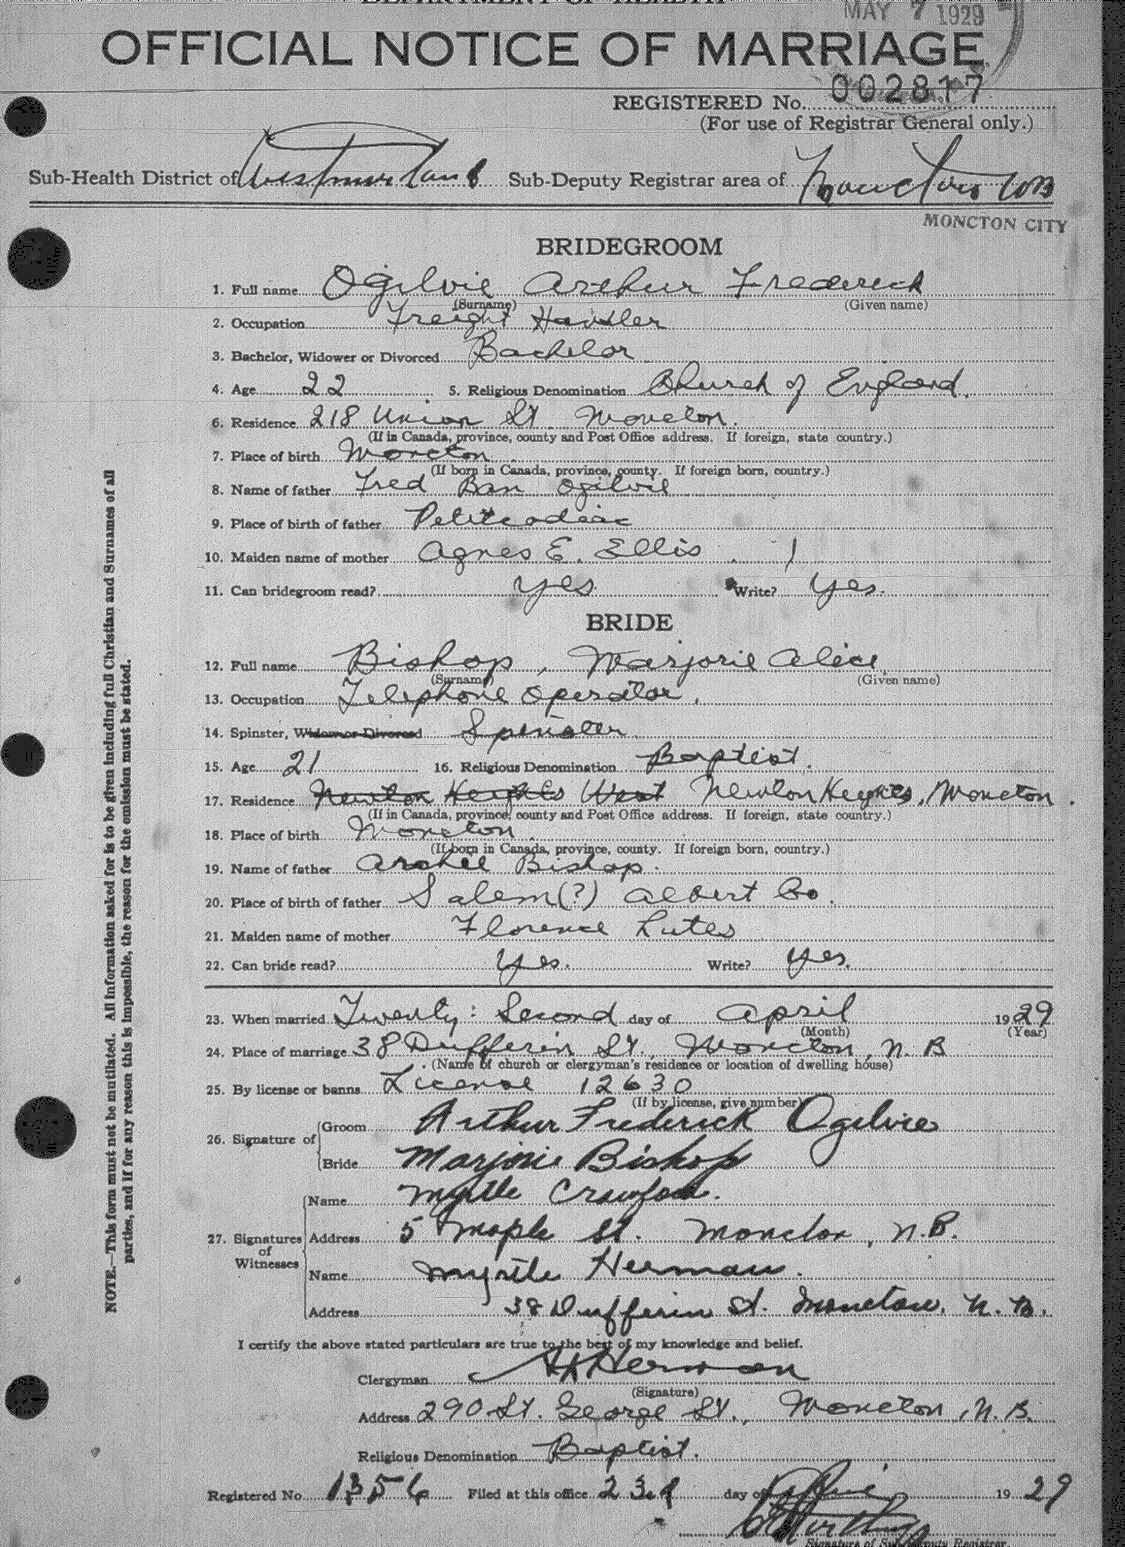 DEPARTMENT OF HEALTH
MAY 7 1929
OFFICIAL NOTICE OF MARRIAGE
REGISTERED No. 002817
(For use of Registrar General only.)
Sub-Health District of Westmorland Sub-Deputy Registrar area of Moncton NB
MONCTON CITY
BRIDEGROOM
1. Full name Ogilvie Arthur Frederick
(Surname) (Given name)
2. Occupation Freight Handler
3. Bachelor, Widower or Divorced Bachelor
4. Age 22 5. Religious Denomination Church of England.
6. Residence 218 Union St. Moncton.
(If in Canada, province, county and Post Office address. If foreign, state country.)
7. Place of birth Moncton
(If born in Canada, province, county. If foreign born, country.)
8. Name of father Fred Ban Ogilvie
9. Place of birth of father Petitcodiac
10. Maiden name of mother Agnes E. Ellis
11. Can bridegroom read? yes Write? yes.
BRIDE
12. Full name Bishop, Marjorie Alice
(Surname) (Given name)
13. Occupation Telephone Operator.
14. Spinster, Widow or Divorced Spinster
15. Age 21 16. Religious Denomination Baptist.
17. Residence Newton Heights West Newton Heights, Moncton.
(If in Canada, province, county and Post Office address. If foreign, state country.)
18. Place of birth Moncton
(If born in Canada, province, county. If foreign born, country.)
19. Name of father Archie Bishop.
20. Place of birth of father Salem(?) Albert Co.
21. Maiden name of mother Florence Lutes
22. Can bride read? yes. Write? yes.
23. When married Twenty: Second day of April 1929
(Month) (Year)
24. Place of marriage 38 Dufferin St., Moncton, N.B
(Name of church or clergyman's residence or location of dwelling house)
25. By license or banns License 12630
(If by license, give number)
26. Signature of Groom Arthur Frederick Ogilvie
Bride Marjorie Bishop
27. Signatures of Witnesses
Name Myrtle Crawford.
Address 5 Maple St. Moncton, N.B.
Name Myrtle Herman.
Address 38 Dufferin St. Moncton, N.B.
I certify the above stated particulars are true to the best of my knowledge and belief.
Clergyman Herman
(Signature)
Address 290 St. George St., Moncton, N.B.
Religious Denomination Baptist.
Registered No. 1356 Filed at this office 23rd day of April 1929
Signature of Sub-Deputy Registrar.
NOTE.—This form must not be mutilated. All information asked for is to be given including full Christian and Surnames of all
parties, and if for any reason this is impossible, the reason for the omission must be stated.